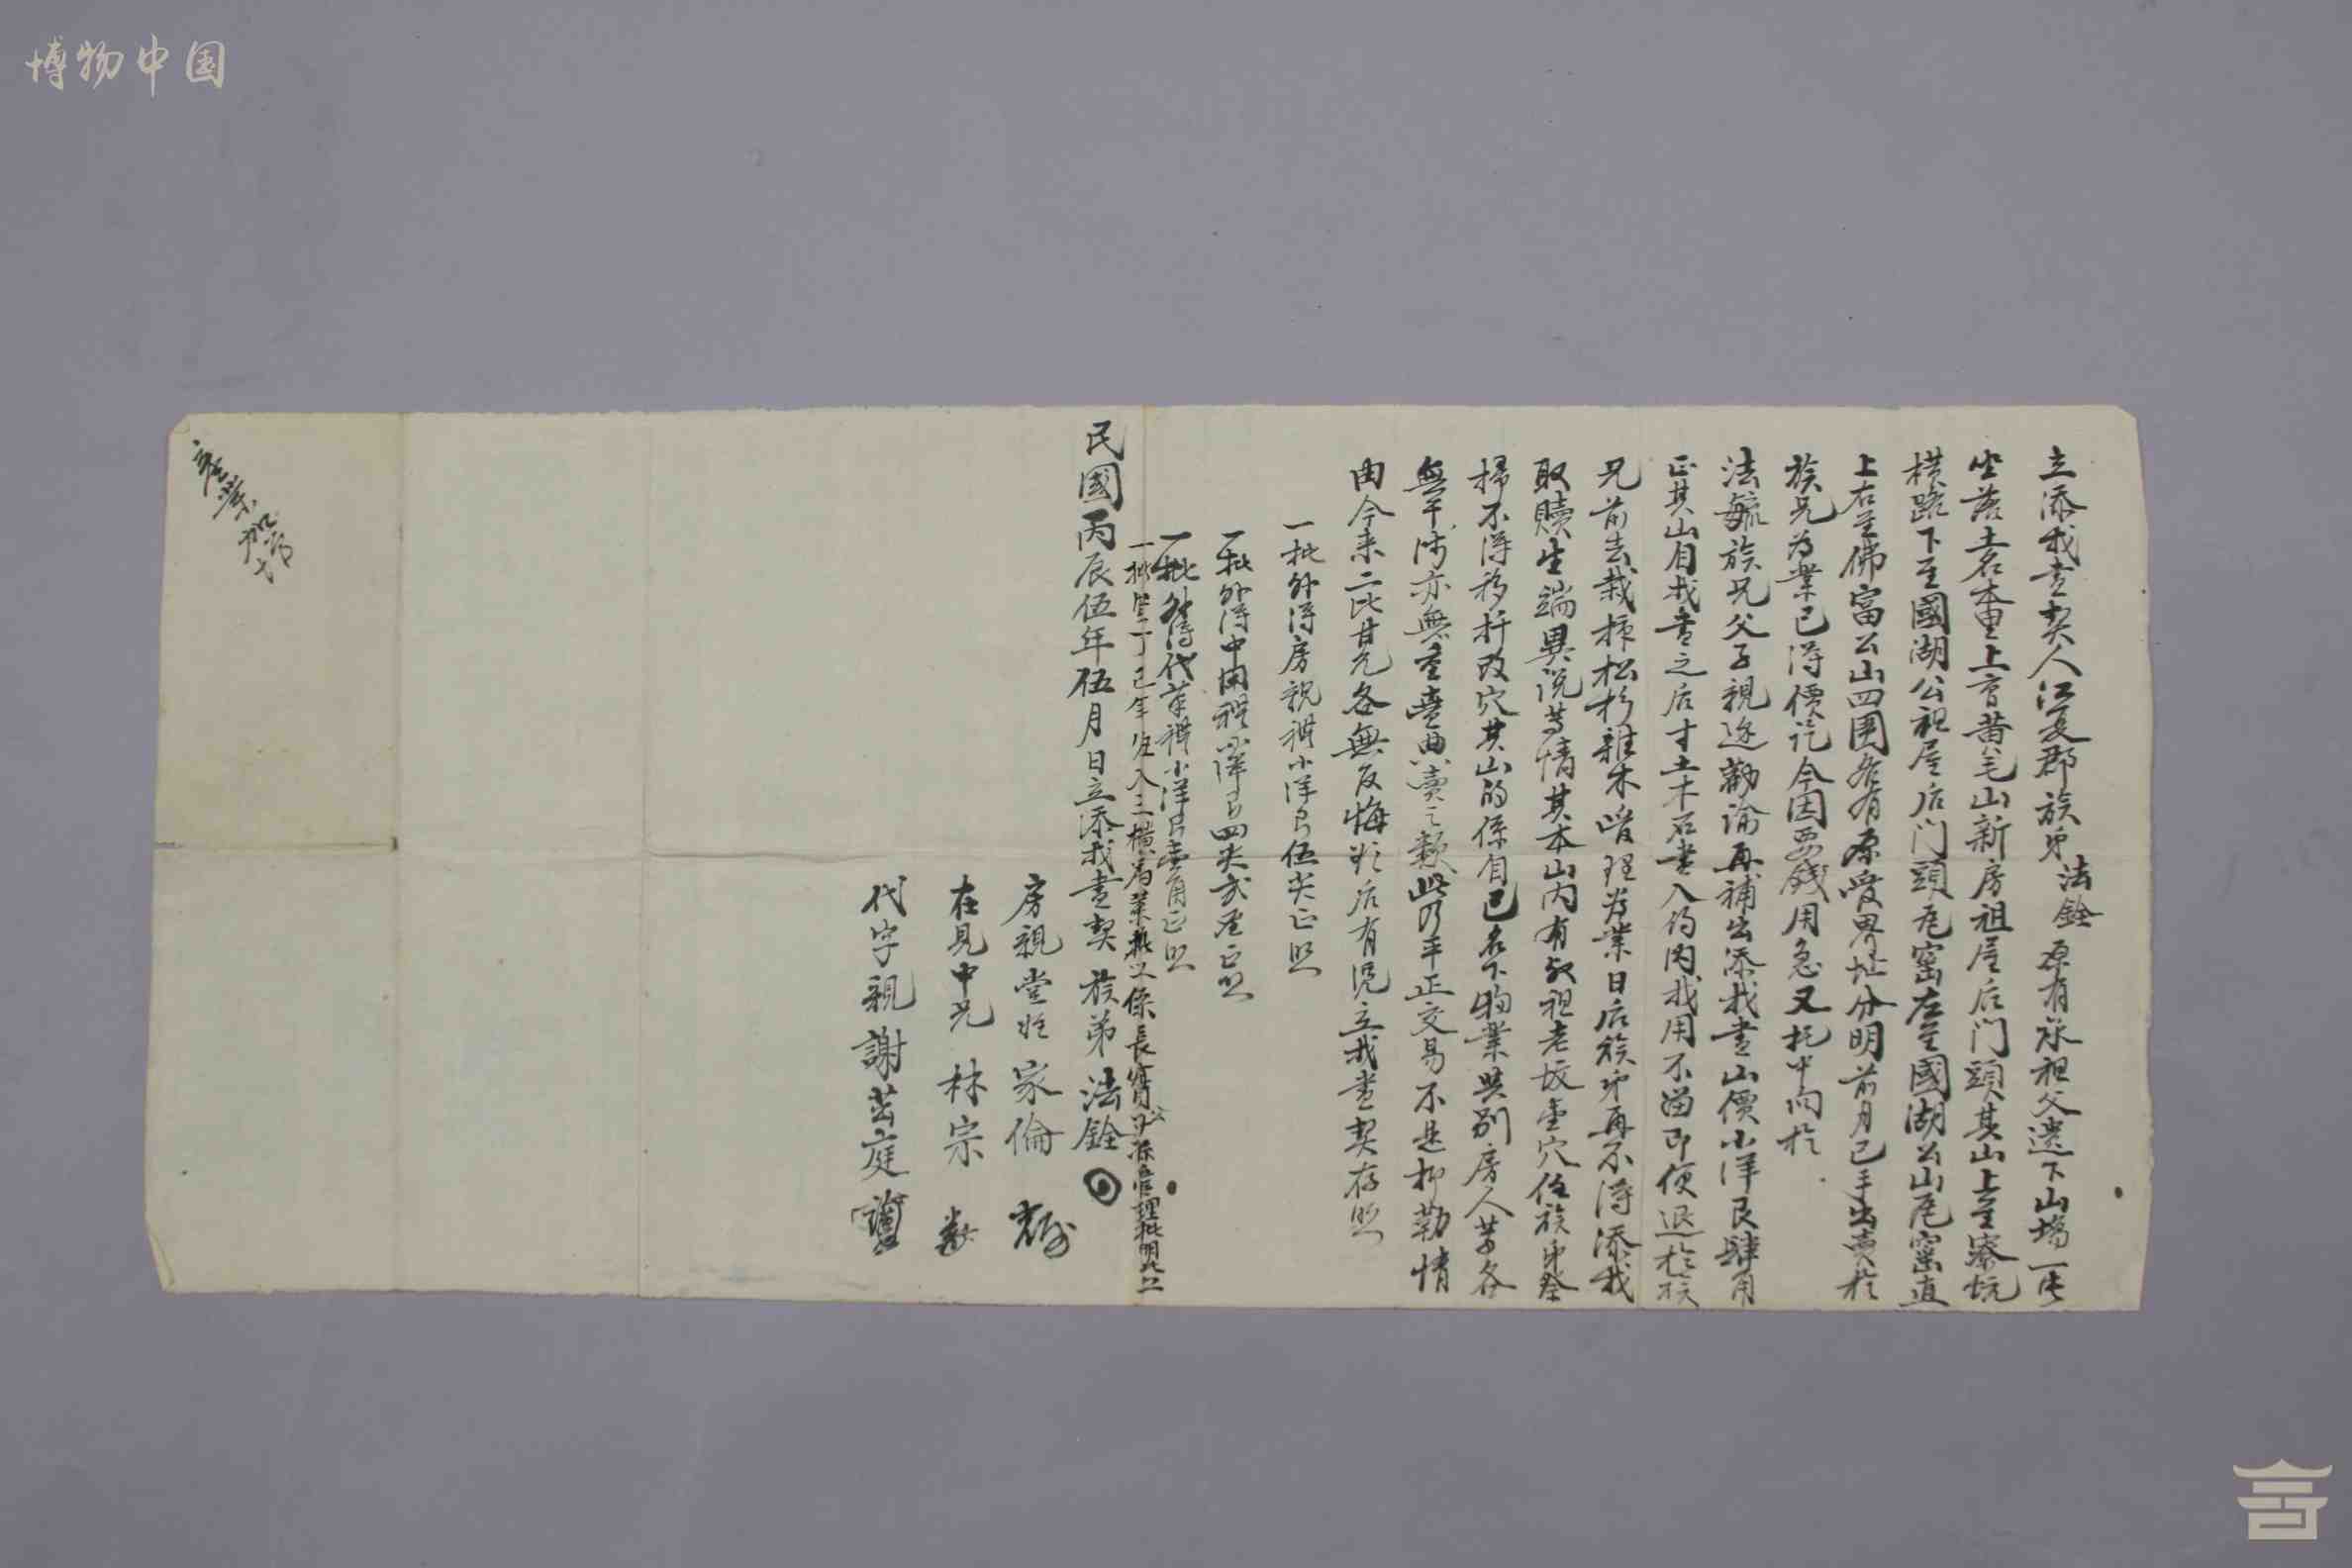 博物中国
立添找尽契人江夏郡族弟法銓原有承祖父遗下山塲一
坐落土名本里上
黄
山新房祖屋后门頭其山上至寮坑
横路下至國湖公祖屋后门頭瓦窑左至國湖公山瓦窑直
上右至佛富公山四围
有原
界址分明前月已手出卖於
族兄为業已淂價讫今因要錢用急又托中向於
法毓族兄父子親
勸諭再補出添找尽山價小洋艮肆角
正其山自找尽之后寸土木石尽入约内找用不留即便退於族
兄前去栽插松杉雜木
理为業日后族弟再不淂添找
取贖生端異说等情其本山内有
祖老坟
穴任族弟祭
掃不淂移扦改穴其山的係自已名下物業與别房人等各
無干涉亦無重
典賣之類此乃平正交易不是抑勒情
由今来二比甘允各無反悔
后有凭立找尽契存照
一批外淂房親禮小洋艮伍尖正照
一批外淂中用禮小洋艮四尖
正照
一批外淂代笔禮小洋艮壹角正照
一批
丁已年
入三横为業
係長
管理批明
照
民國丙辰伍年伍月日立添找尽契族弟法銓
房親堂
家倫
在見中兄林宗
代字親謝
庭